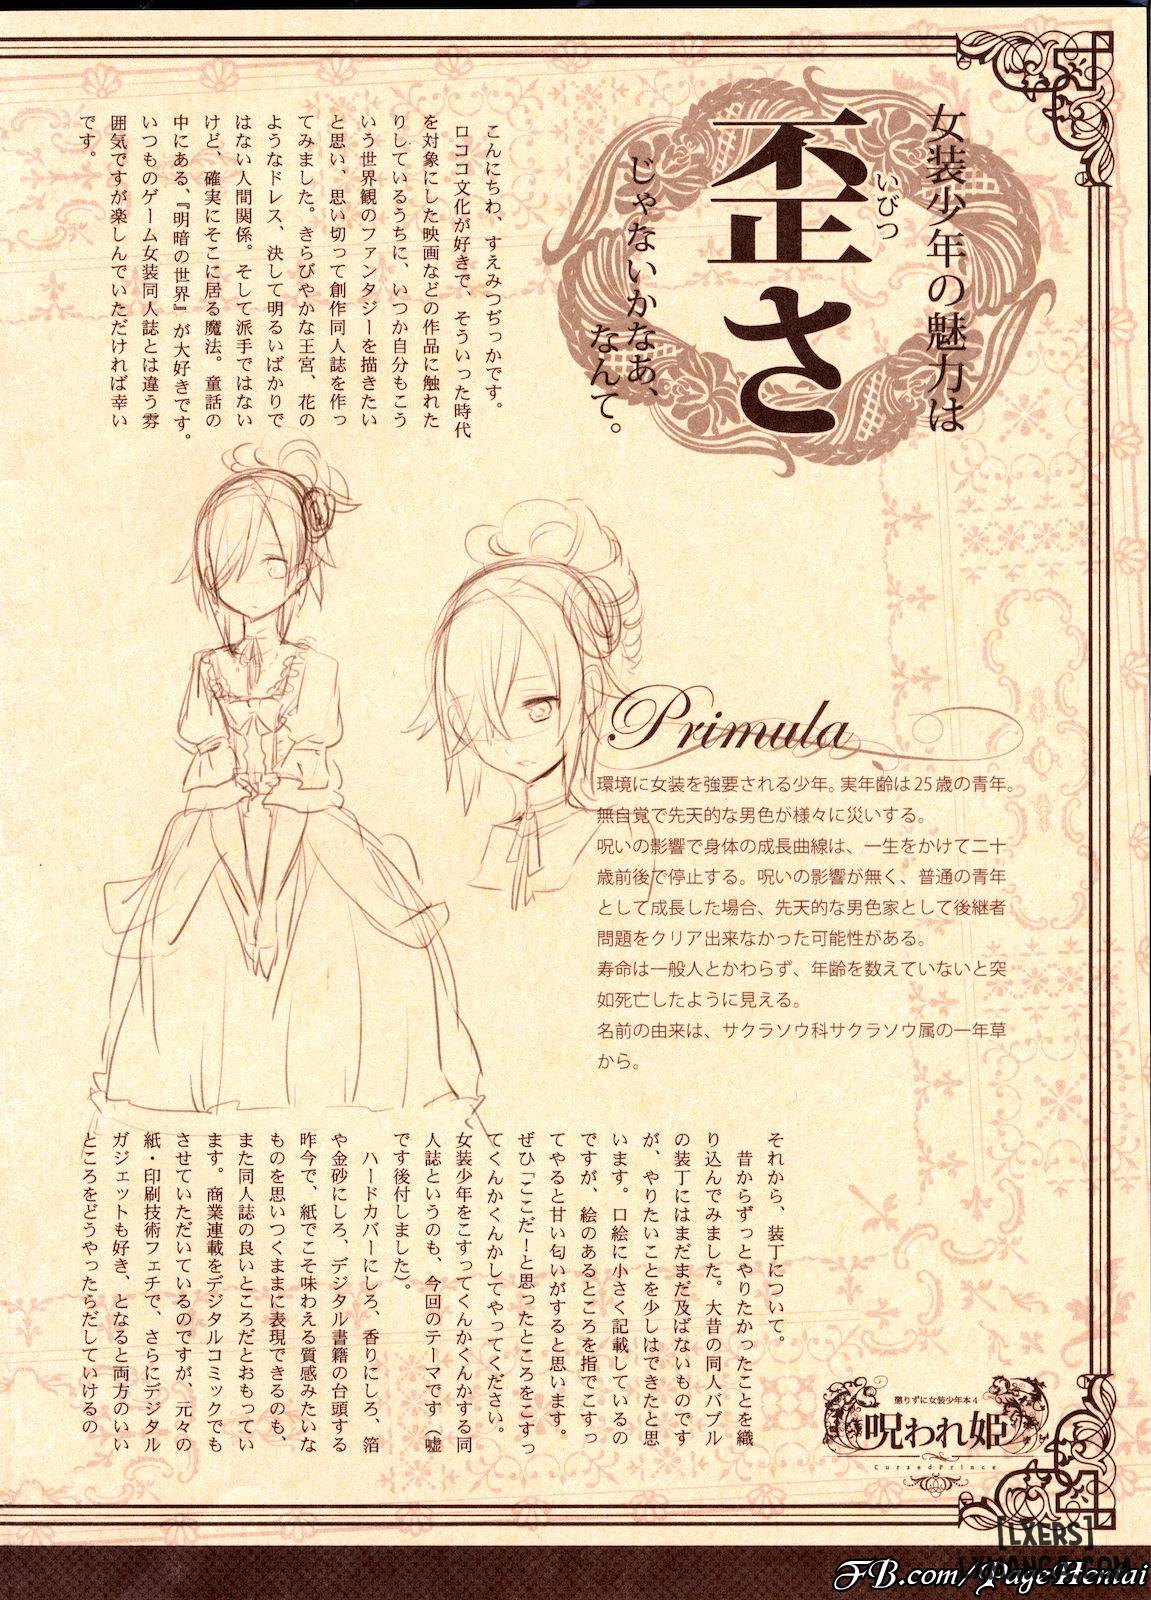 女装少年の魅力は
いびつ
歪さ
じゃないかなあ、
なんて。
こんにちわ、すえみつぢっかです。
ロココ文化が好きで、そういった時代
を対象にした映画などの作品に触れた
りしているうちに、いつか自分もこう
いう世界観のファンタジーを描きたい
と思い、思い切って創作同人誌を作っ
てみました。きらびやかな王宮、花の
ようなドレス、決して明るいばかりで
はない人間関係。そして派手ではない
けど、確実にそこに居る魔法。童話の
中にある、『明暗の世界』が大好きです。
いつものゲーム女装同人誌とは違う雰
囲気ですが楽しんでいただければ幸い
です。
Primula
環境に女装を強要される少年。実年齢は25歳の青年。
無自覚で先天的な男色が様々に災いする。
呪いの影響で身体の成長曲線は、一生をかけて二十
歳前後で停止する。呪いの影響が無く、普通の青年
として成長した場合、先天的な男色家として後継者
問題をクリア出来なかった可能性がある。
寿命は一般人とかわらず、年齢を数えていないと突
如死亡したように見える。
名前の由来は、サクラソウ科サクラソウ属の一年草
から。
それから、装丁について。
昔からずっとやりたかったことを織
り込んでみました。大昔の同人バブル
の装丁にはまだまだ及ばないものです
が、やりたいことを少しはできたと思
います。口絵に小さく記載しているの
ですが、絵のあるところを指でこすっ
てやると甘い匂いがすると思います。
ぜひ「ここだ！と思ったところをこすっ
てくんかくんかしてやってください。
女装少年をこすってくんかくんかする同
人誌というのも、今回のテーマです（嘘
です後付しました）。
ハードカバーにしろ、香りにしろ、箔
や金砂にしろ、デジタル書籍の台頭する
昨今で、紙でこそ味わえる質感みたいな
ものを思いつくままに表現できるのも、
また同人誌の良いところだとおもってい
ます。商業連載をデジタルコミックでも
させていただいているのですが、元々の
紙・印刷技術フェチで、さらにデジタル
ガジェットも好き、となると両方のいい
ところをどうやったらだしていけるの
懲りずに女装少年本4
呪われ姫
CursedPrince
[LXERS]
LXMANGA.COM
FB.com/PageHentai